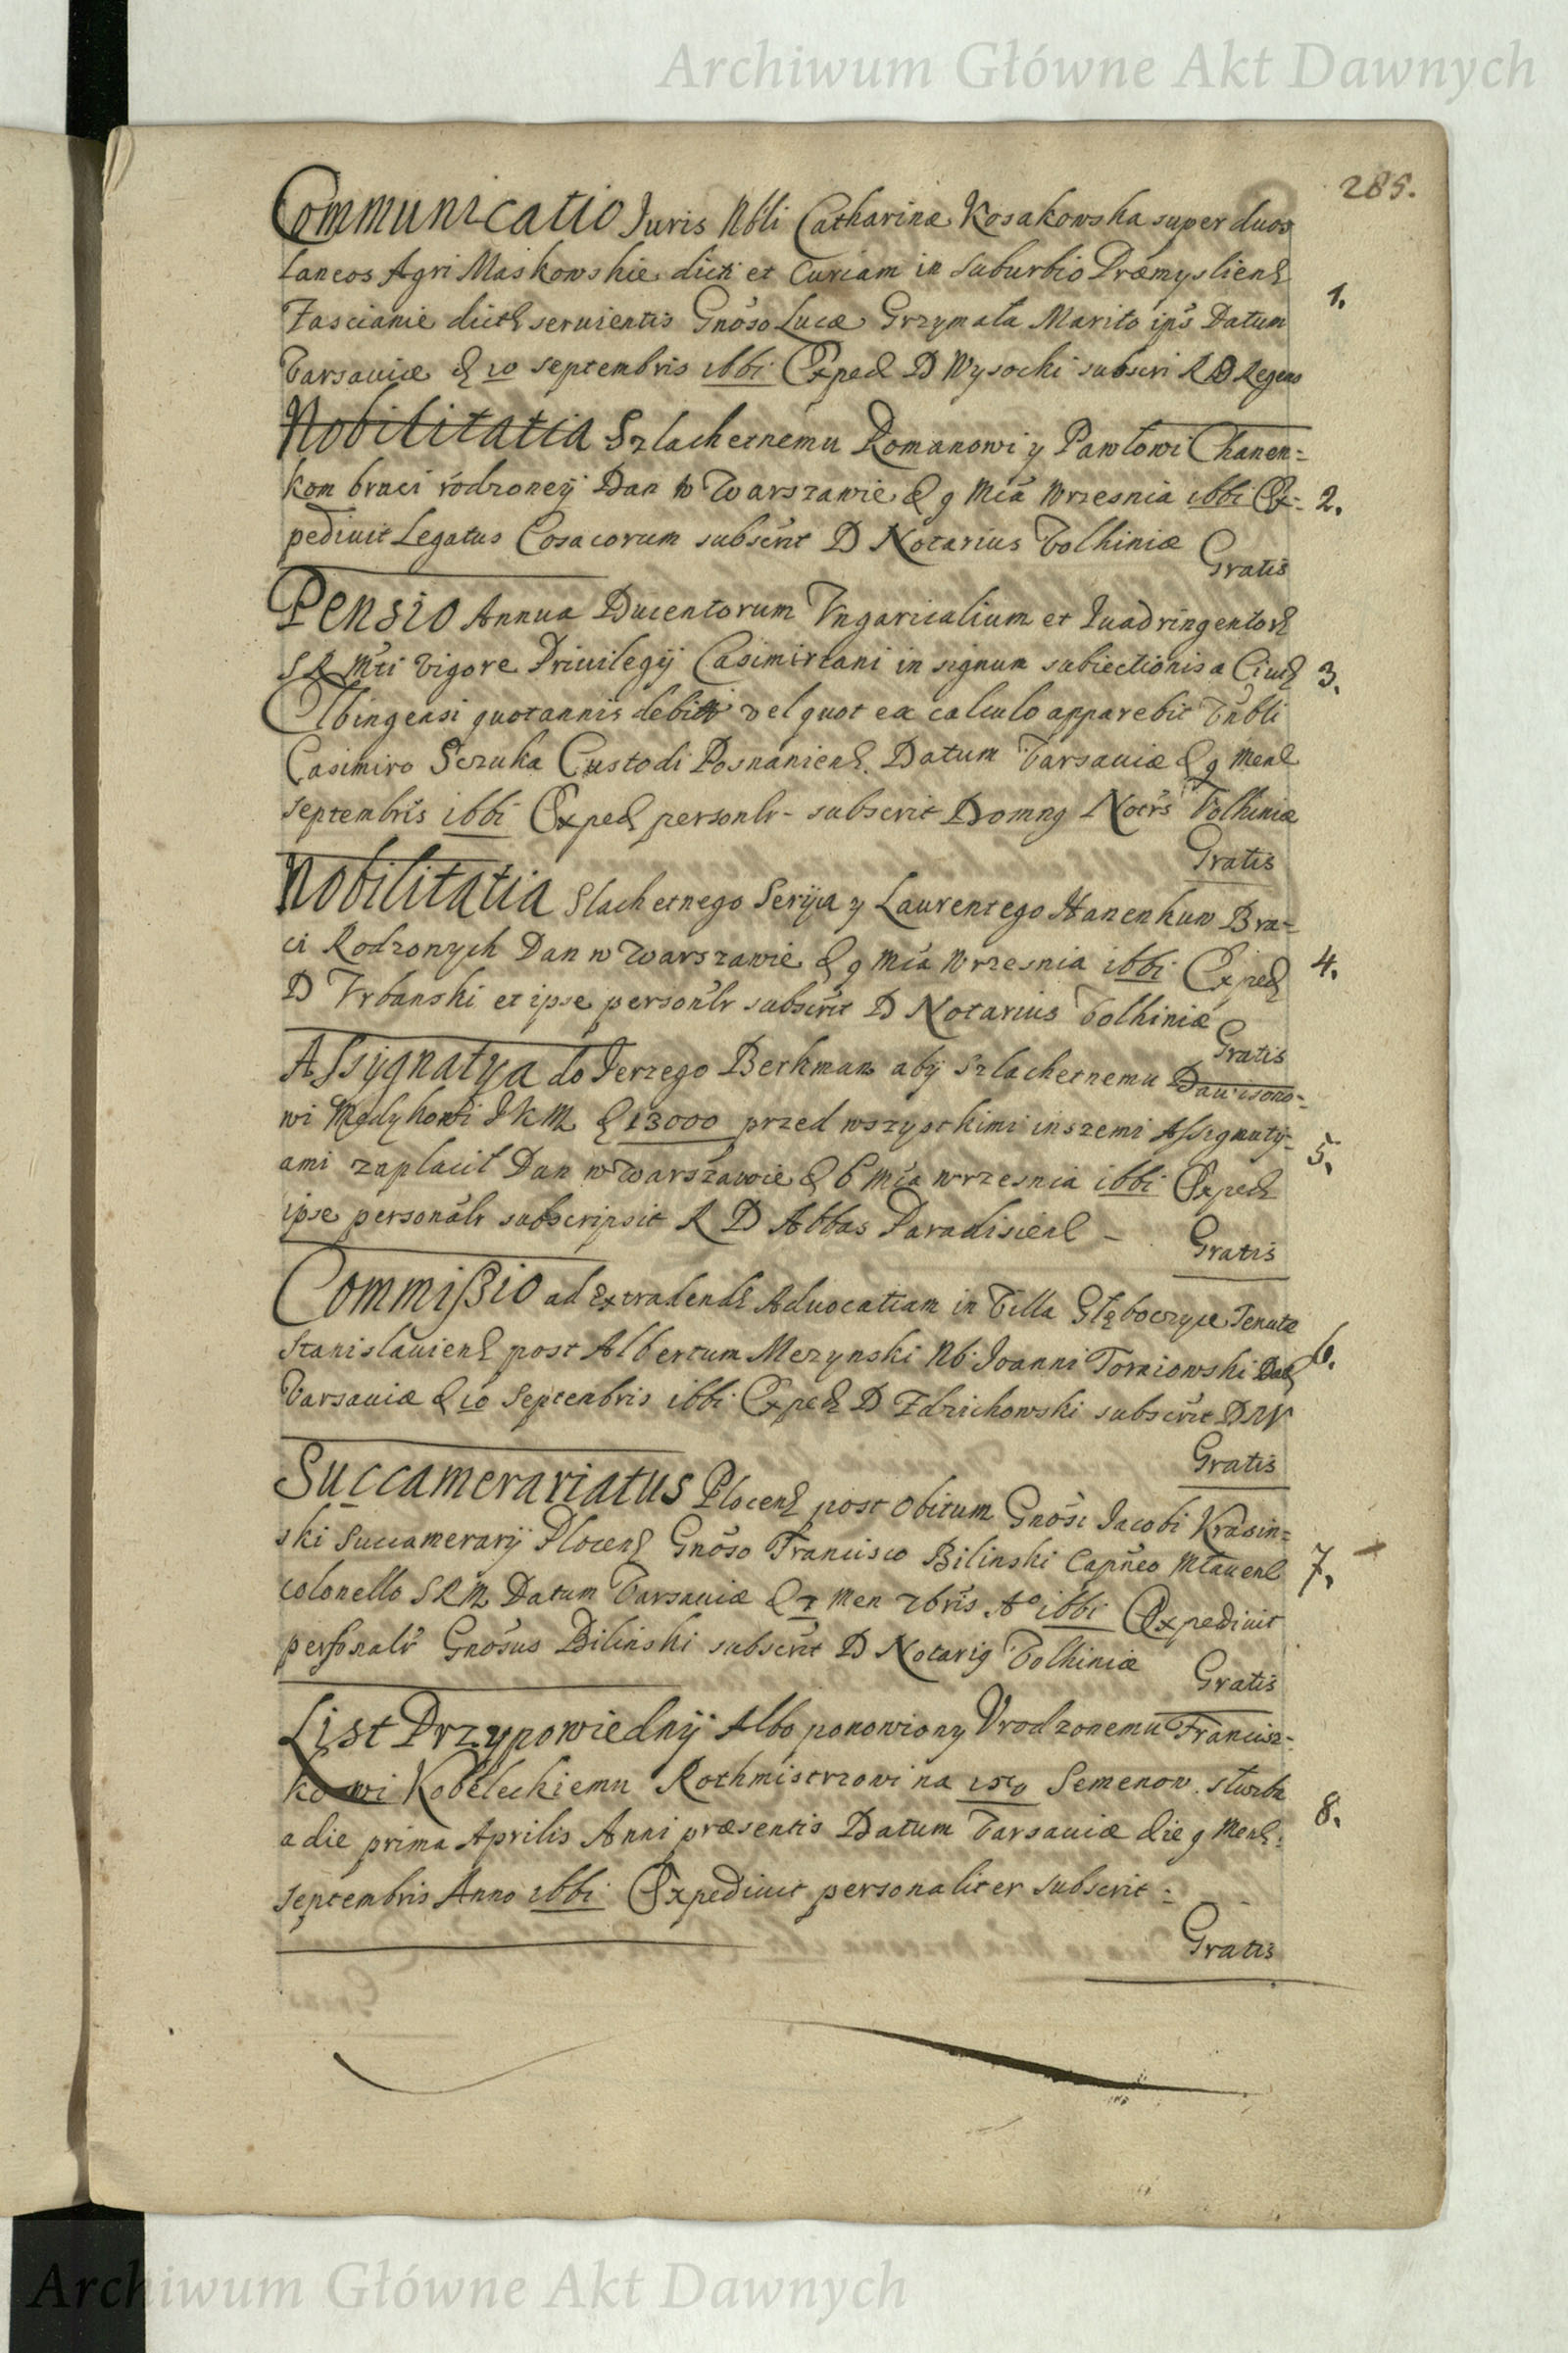 Archiwum Główne Akt Dawnych
285.
Communicatio Juris Nbli Catharinæ Kosakowska super duos
Laneos Agri Maskowskie dicti et Curiam in suburbio Præmysliens
seruientis Gnoso Lucæ Grzymała Marito ips Datum
1.
Varsauiæ d 10 septembris 1661 Exped D Wysocki subscri R D Regens
Nobilitatia Szlachetnemu Romanowi y Pawłowi Chanen=
kom braci rodzoney Dan w Warszawie d 9 Mca Wrzesnia 1661 Ex=
2.
pediuit Legatus Cosacorum subscrit D Notarius Volhiniæ
Gratis
Pensio Annua Ducentorum Vngaricalium et Quadringentor
S R Mti vigore Priuilegij Casimiriani in signum subiectionis a Ciuit
3.
Elbingensi quotannis debiti vel quot ex calculo apparebit Vnbli
Casimiro Sczuka Custodi Posnaniens. Datum Varsauiæ d 9 Mens
septembris 1661 Exped personlr - subscrit Domng Notrs Volhiniæ
Gratis
Nobilitatia Slachetnego Seryia y Laurentego Hanenkuw Bra=
ci Rodzonych Dan w Warszawie d 9 Mca Wrzesnia 1661 Exped
4.
D Vrbanski et ipse personlr subscrit D Notarius Volhiniæ
Gratis
Assygnatya do Jerzego Berkman aby Szlachetnemu Dauisono=
wi Medykowi J K M d 13000 przed wszystkimi inszemi Assignaty=
5.
ami zaplacił Dan w Warszawie d 6 Mca wrzesnia 1661 Exped
ipse personalr subscripsit R D Abbas Paradisiens -
Gratis
Commissio ad extradend Aduocatiam in Villa Głęboczyce Tenutæ
Stanislauiens post Albertum Mezynski Nb. Joanni Torniowski Dat
6.
Varsauiæ d 10 Septembris 1661 Exped D Zdzichowski subscrit D R V
Gratis
Succamerariatus Plocens post obitum Gnosi Jacobi Krasin=
ski Succamerarij Plocens Gnoso Francisco Bilinski Capneo Mlauens
7.
colonello S R M Datum Varsauiæ d 7 Men 7bris Ao 1661 Expediuit
personalr Gnosus Bilinski subscrit D Notarig Volhiniæ
Gratis
List Przypowiedny Albo ponowiony Vrodzonemu Francisz=
kowi Kobeleckiemu Rothmistrzowi na 150 Semenow. słuzba
a die prima Aprilis Anni præsentis Datum Varsauiæ die 9 Mens:
8.
septembris Anno 1661 Expediuit personaliter subscrit :
Gratis
Archiwum Główne Akt Dawnych